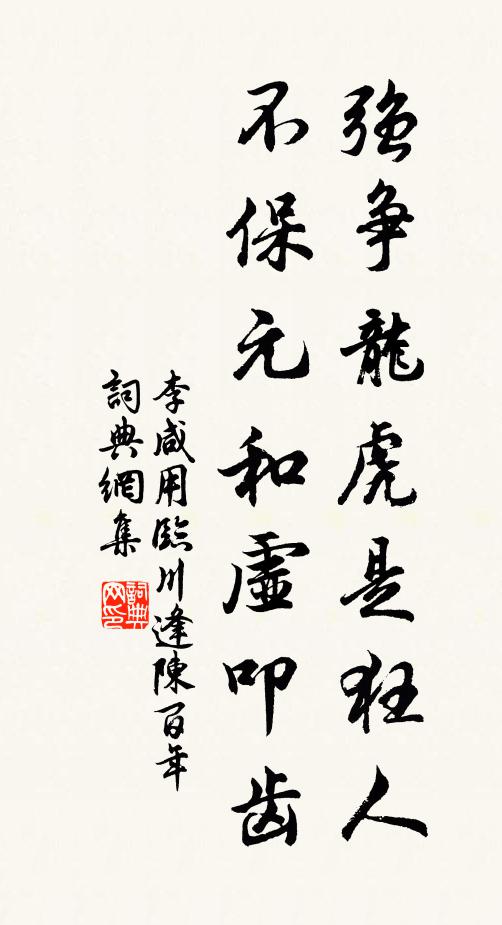 強争龍虎是狂人
不保元和虛叩齿
李咸用臨川逢陳百年
詞典網集
詞典
网印